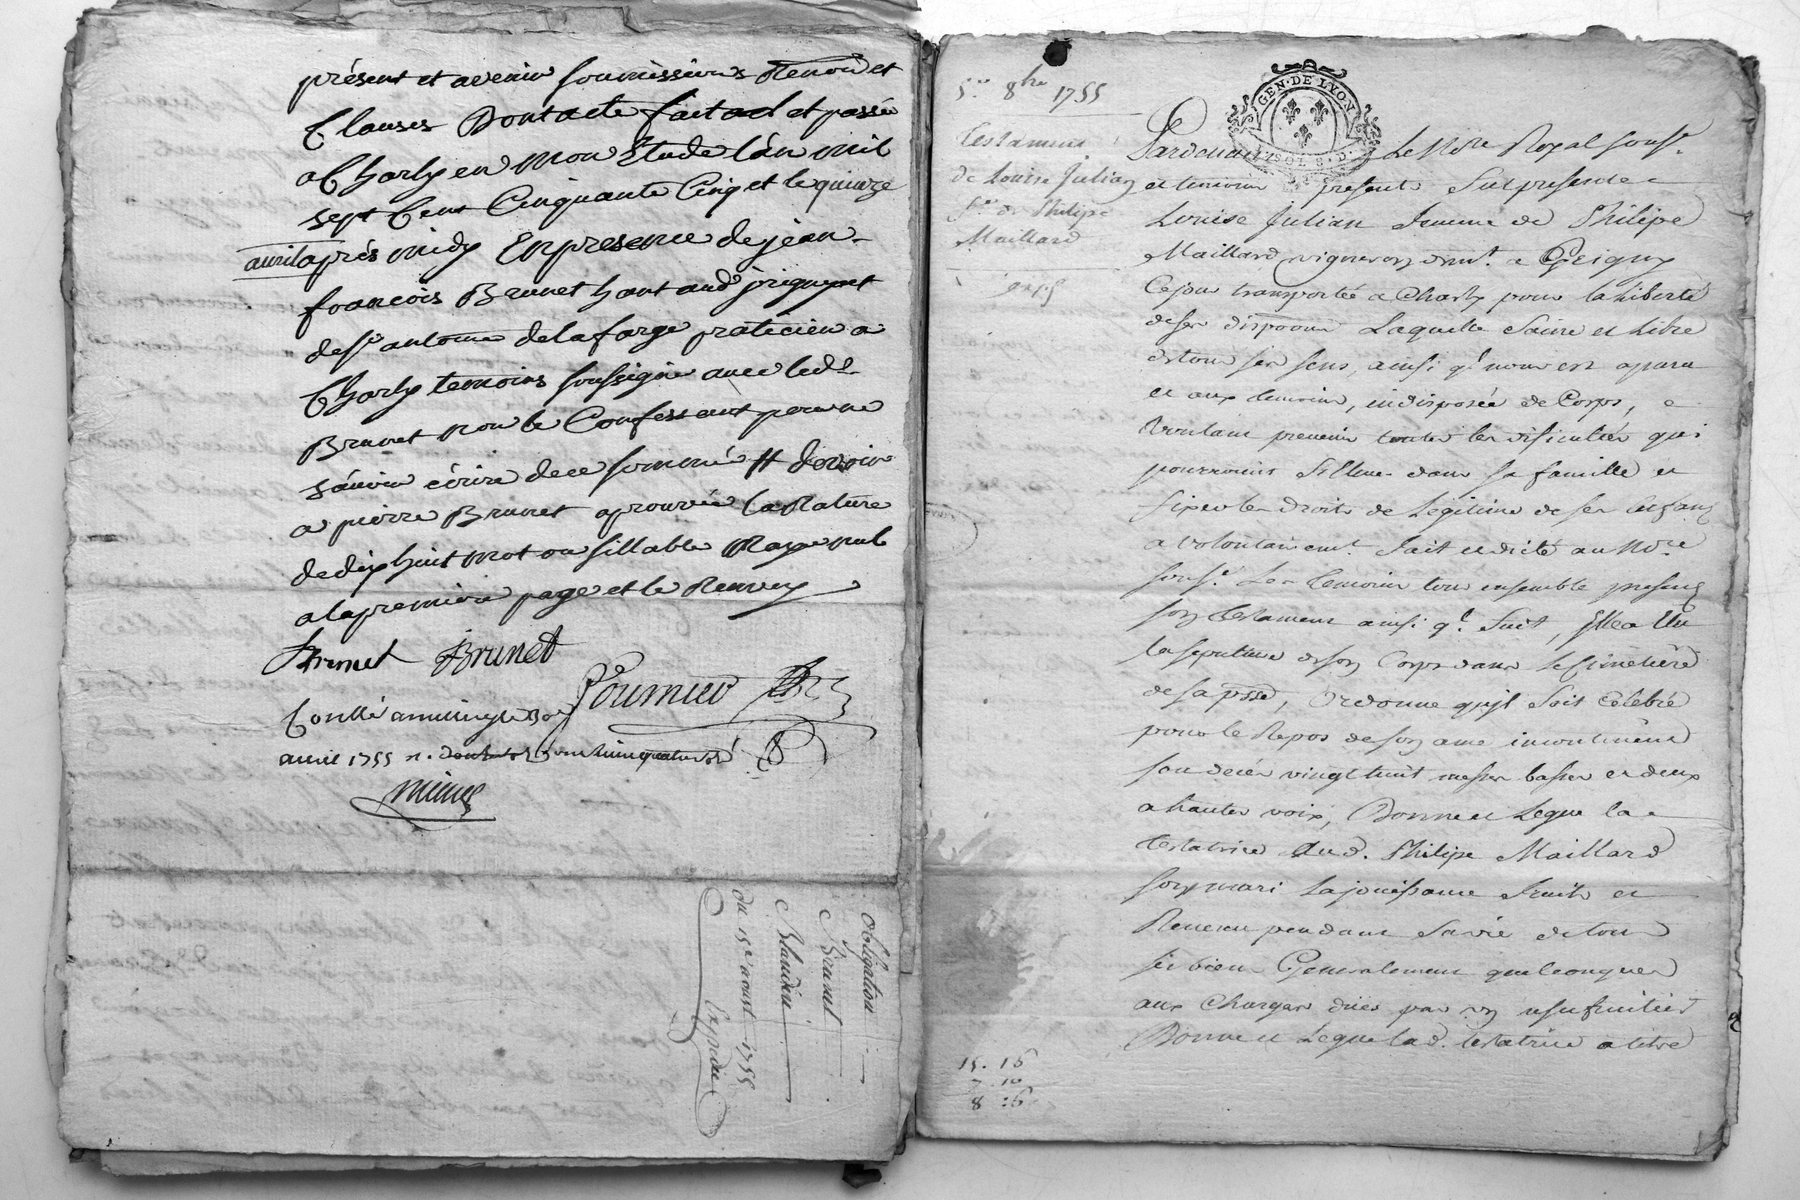 présent et avenir soumissions Renon et
Clauses Dont acte fait et passé
a Charly en mon Etude l'an mil
sept Cent Cinquante Cinq et le quinze
avril après midy En presence de jean
francois Brunet
de sr antoine delafarge praticien a
Charly temoins soussigné avec led.
Brunet non le Confessant pour ne
sávoir écrire de ce sommé # devoir
a pierre Brunet aprouvée la Rature
de dix huit mot ou sillable Raye nul
a la premiere page et le Renvoy
Brunet Brunet
Fournier
Conllé a
avril 1755
Obligation
Brunet
Blandin
du 15e avril 1755
Expédié
5e 8bre 1755
Testament
de Louise Julian
fe de Philipe
Maillard
GEN. DE LYON
Pardevant Le Nore Royal sousé
et temoins presents Fut presente
Louise Julian femme de Philipe
Maillard vigneron demt. a Grigny
Ce jour transportée a Charly pour la liberté
de ses disposons Laquelle Saine et Libre
de tous ses sens, ainsi q'l nous est aparu
et aux temoins, indisposée de Corps, e
Voulant prevenir toutes les dificultés qui
pourroint s'Elever dans sa famille et
fixer les Droits de Legitime de ses Enfans
a volontairemt. fait et dicté au Nore
sousé. Les temoins tous ensemble presens
son testament ainsi q'l. Suit, Elle a Elu
la sepulture de son Corps dans le Cimetiére
de sa psse, Ordonne qu'jl soit Celebré
pour le Repos de son ame incontinent
son decés vingt huit messes basses et deux
a hautes voix, Donne et Legue la
testatrice aud. Philipe Maillard
son mari La jouissance fruits et
Revenu pendant Sa vie de tous
ses biens Generalement quelconques
aux Charges dües par un usufruitier
Donne et Legue lad. testatrice a titre
15 . 16
7 . 10
8 : 6